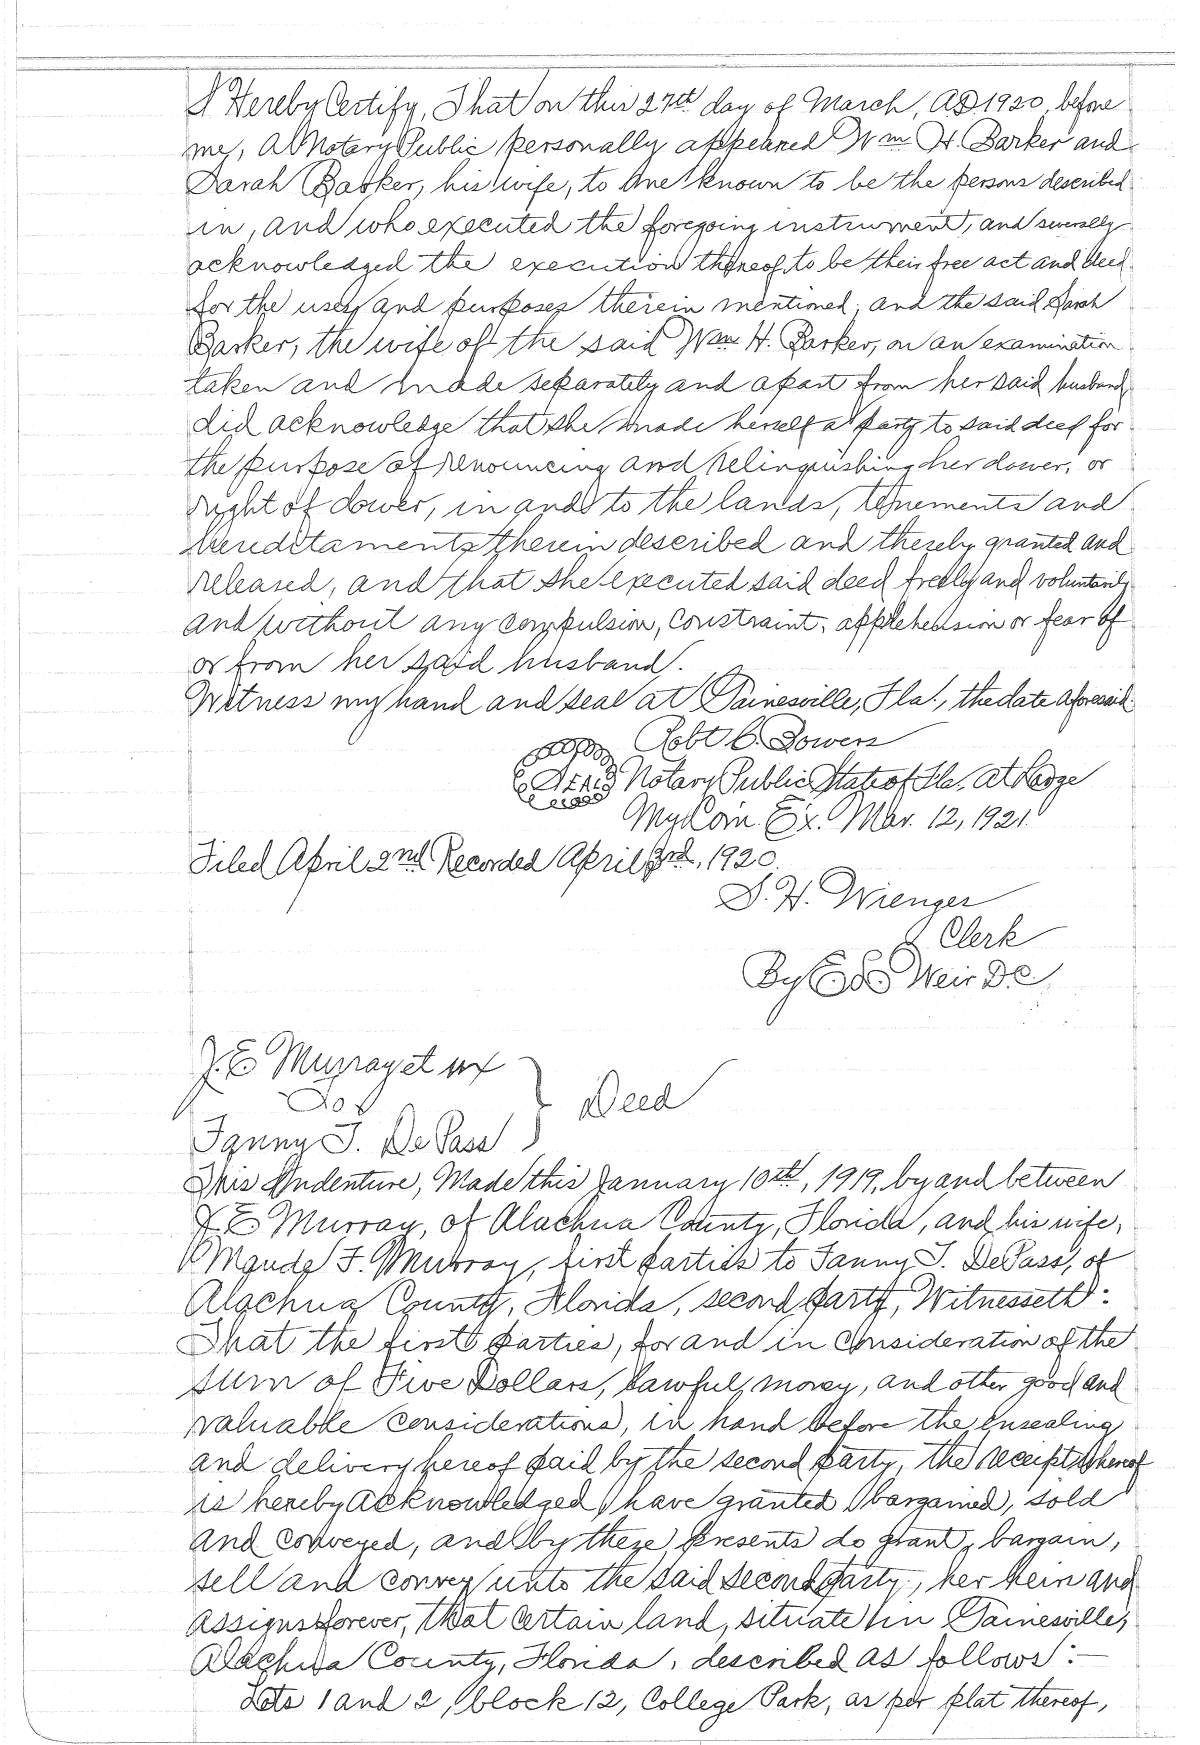 I Hereby Certify, That on this 27th day of March, A.D. 1920, before
me, A Notary Public personally appeared Wm H. Barker and
Sarah Barker, his wife, to me known to be the persons described
in, and who executed the foregoing instrument, and severally
acknowledged the execution thereof to be their free act and deed
for the uses and purposes therein mentioned; and the said Sarah
Barker, the wife of the said Wm H. Barker, on an examination
taken and made separately and apart from her said husband
did acknowledge that she made herself a party to said deed for
the purpose of renouncing and relinquishing her dower, or
right of dower, in and to the lands, tenements and
hereditaments therein described and thereby granted and
released, and that she executed said deed freely and voluntarily
and without any compulsion, constraint, apprehension or fear of
or from her said husband.
Witness my hand and seal at Gainesville, Fla., the date aforesaid.
Robt C. Bowers
SEAL Notary Public State of Fla. At Large
My Com. Ex. Mar. 12, 1921
Filed April 2nd Recorded April 3rd, 1920.
S. H. Wienges
Clerk
By E Weir D.C.
J. E Murray et ux
To
Deed
Fanny T. DePass
This Indenture, Made this January 10th, 1919, by and between
J. E Murray, of Alachua County, Florida, and his wife,
Maude F. Murray, first parties to Fanny T. DePass, of
Alachua County, Florida, second party, Witnesseth:
That the first parties, for and in consideration of the
sum of Five Dollars, lawful money, and other good and
valuable considerations, in hand before the ensealing
and delivery hereof paid by the second party, the receipt whereof
is hereby acknowledged, have granted, bargained, sold
and conveyed, and by these presents do grant, bargain,
sell and convey unto the said second party, her heirs and
assigns forever, that certain land, situate in Gainesville,
Alachua County, Florida, described as follows:—
Lots 1 and 2, block 12, College Park, as per plat thereof,